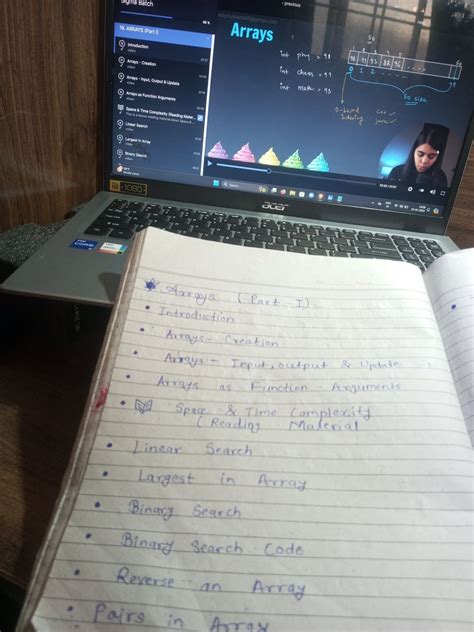 Sigma Batch
previous
16. ARRAYS (Part I)
Introduction
video
Arrays - Creation
video
Arrays - Input, Output & Update
video
Arrays as Function Arguments
video
Space & Time Complexity (Reading Mater
Linear Search
video
Largest in Array
video
Binary Search
video
Arrays
int phy = 98
int chem = 99
int math = 93
50
0 1 2
99
50 size
0-based
indexing
C++
java
Search
1080
acer
Arrays (Part - I)
Introduction
Arrays - Creation
Arrays - Input, output & Update
Arrays as Function Arguments
Space & Time Complexity
(Reading Material
Linear Search
Largest in Array
Binary Search
Binary Search Code
Reverse an Array
Pairs in Array